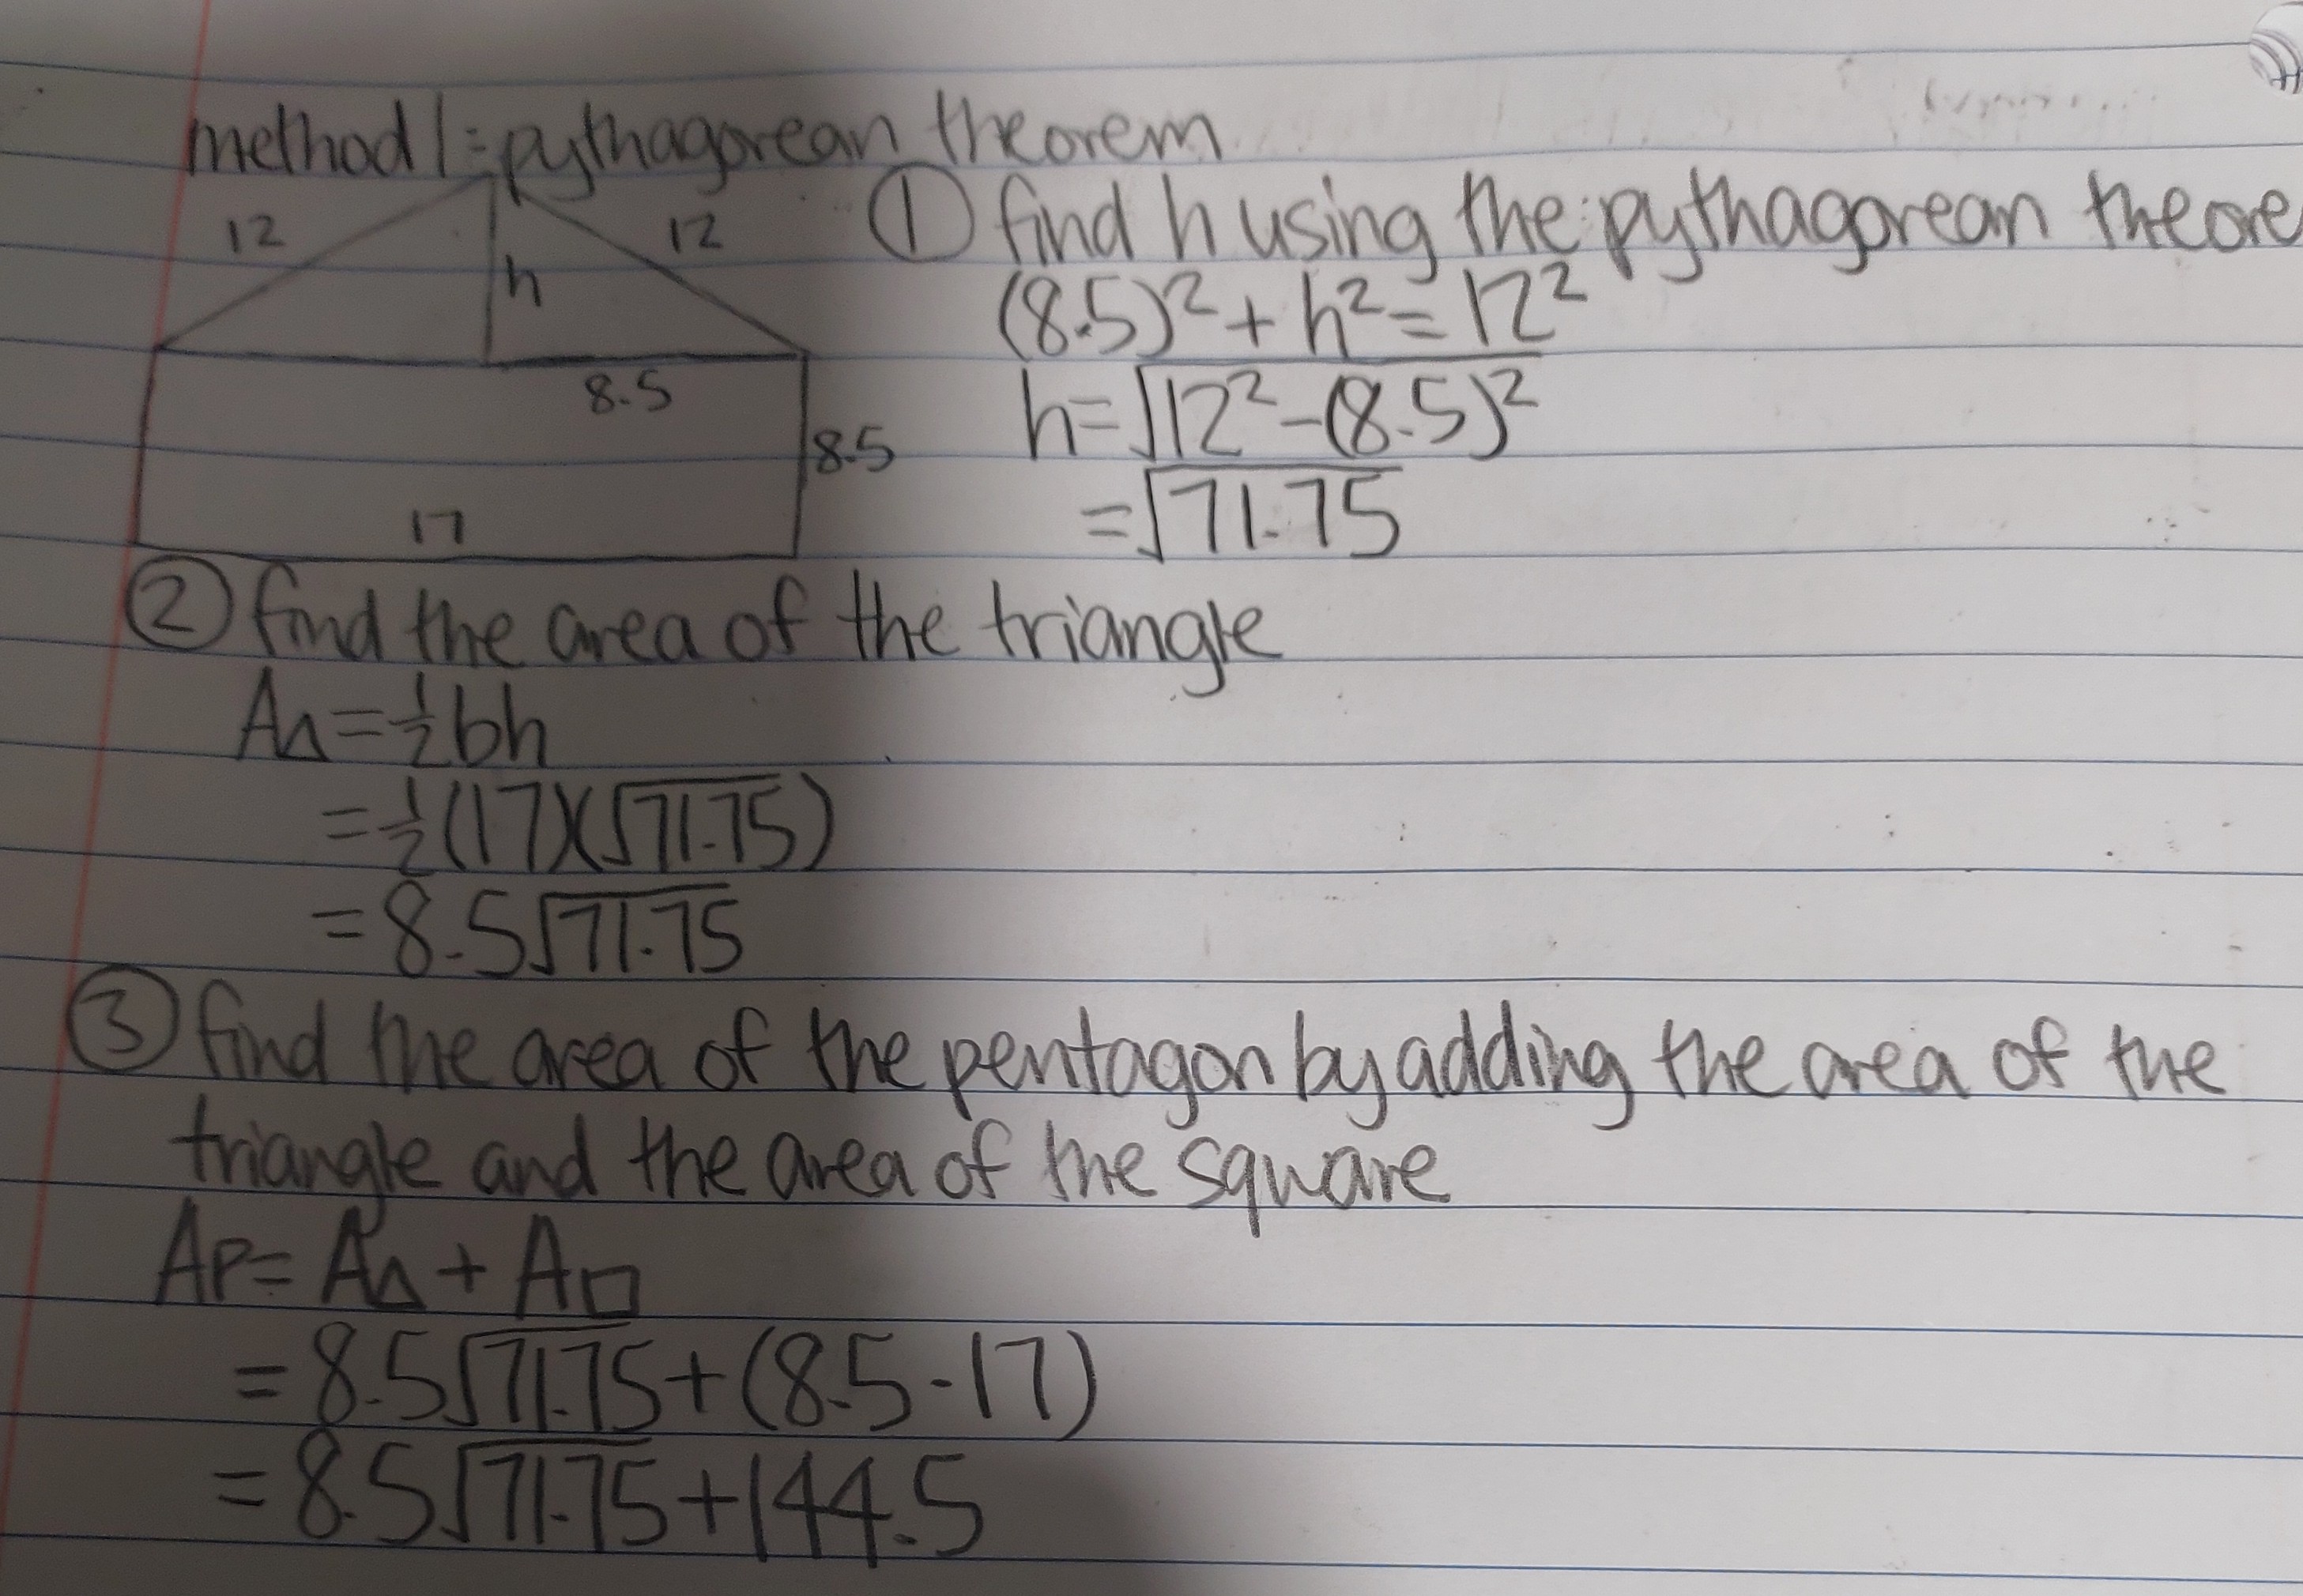 method 1: pythagorean theorem
12
12
h
8.5
8.5
17
① find h using the pythagorean theore
(8.5)² + h² = 12²
h = √12² - (8.5)²
= √71.75
② find the area of the triangle
A△ = ½bh
= ½(17)(√71.75)
= 8.5√71.75
③ find the area of the pentagon by adding the area of the
triangle and the area of the square
AP = A△ + A□
= 8.5√71.75 + (8.5·17)
= 8.5√71.75 + 144.5